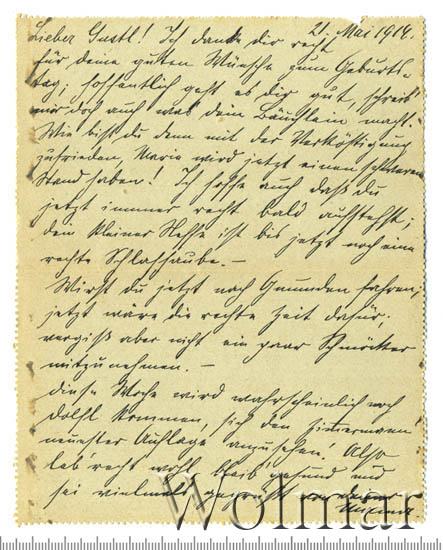 21. Mai 1914.
Lieber Gustl! Ich danke dir recht
für deine guten Wünsche zum Geburts-
tag; hoffentlich geht es dir gut, schreib
mir doch auch was dein Bäuchlein macht.
Wie bist du denn mit der Verköstigung
zufrieden, Marie wird jetzt einen schweren
Stand haben! Ich hoffe auch daß du
jetzt immer recht bald aufstehst;
dein kleiner Neffe ist bis jetzt noch eine
rechte Schlafhaube. –
Wirst du jetzt nach Gmunden fahren;
jetzt wäre die rechte Zeit dafür;
vergiß aber nicht ein paar Schmöcker
mitzunehmen. –
diese Woche wird wahrscheinlich noch
Dolfl kommen, sich den
neuester Auflage anzusehen. Also
leb' recht wohl, bleib gesund und
sei vielmals gegrüßt von deiner
Wolmar